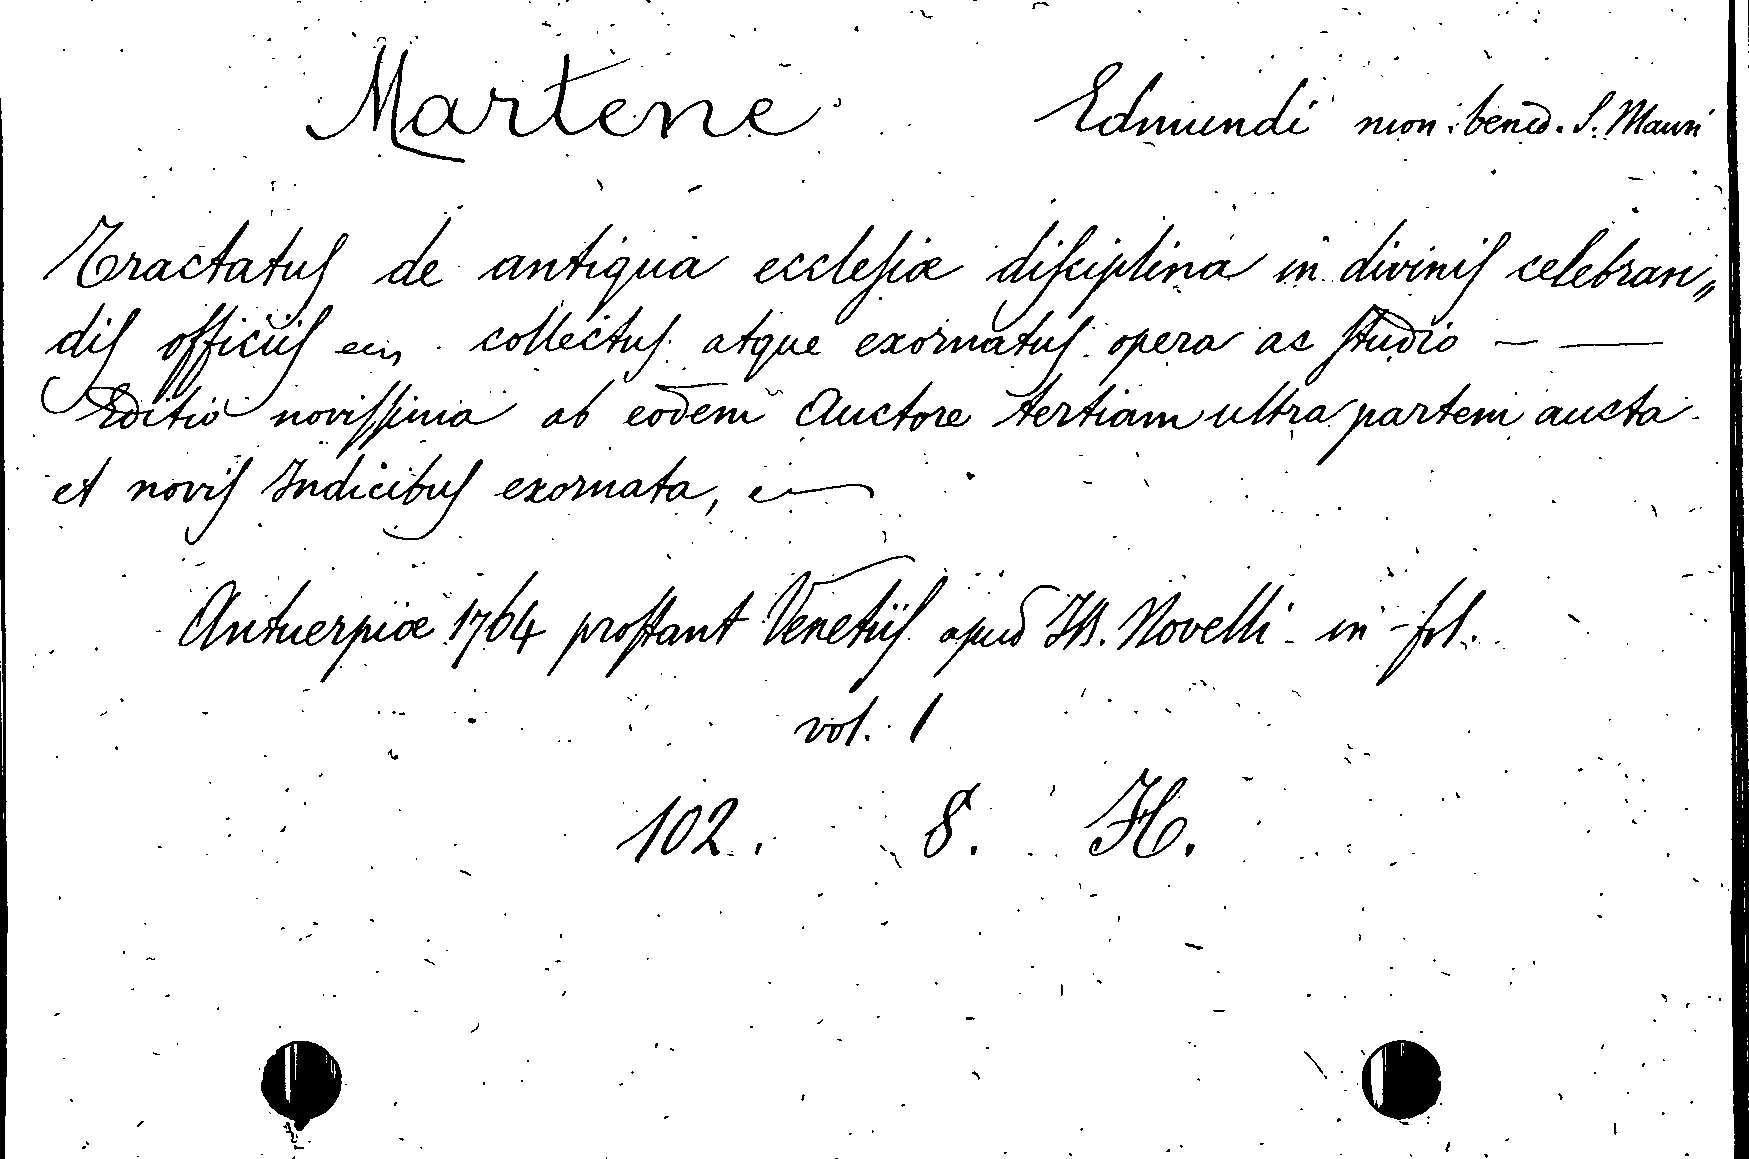 Martene Edmundi mon. bened. S. Mauri
Tractatus de antiqua ecclesiæ disciplina in divinis celebran„
dis officiis collectus atque exornatus opera ac studio — —
Editio novissima ab eodem Auctore tertiam ultra partem aucta
et novis Indicibus exornata,
Antuerpiæ 1764 prostant Venetiis apud JB. Novelli in-fol.
vol. 1
102. 8. H.